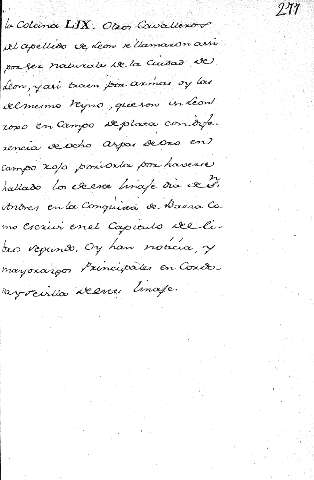 277
la Coluna LIX. Otros Cavalleros
del apellido de Leon se llamaron assi
por ser naturales de la Ciudad de
Leon, y assi traen por armas oy las
del mismo Reyno, que son un Leon
roxo en Campo de plata con dife-
rencia de ocho aspas de oro en
campo rojo por orla por haverse
hallado los de ese linaje dia de Sn.
Andres en la Conquista de Baeza Co-
mo escrivi en el Capitulo del li-
bro segundo. Oy han noticia, y
mayorazgos Principales en Cordo-
va, y Sevilla de ese linaje.